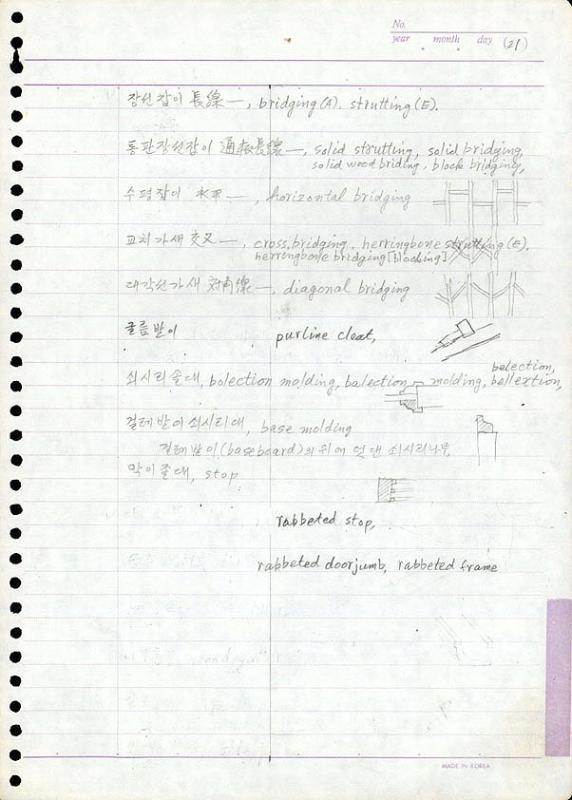 No.
year month day (21)
장선잡이 長線―, bridging(A). strutting(E).
통판장선잡이 通板長線―, solid strutting, solid bridging,
solid wood briding, block bridging,
수평잡이 水平―, horizontal bridging
교차가새 交叉―, cross.bridging, herringbone strutting(E).
herringbone bridging[blocking]
대각선가새 対角線―, diagonal bridging
구름받이 purline cleat,
belection,
쇠시리졸대, bolection molding, balection molding, bellextion,
걸레받이쇠시리대, base molding
걸레받이(baseboard)의 위에 덧댄 쇠시리나무
막이졸대, stop
rabbeted stop,
rabbeted doorjumb, rabbeted frame
MADE IN KOREA